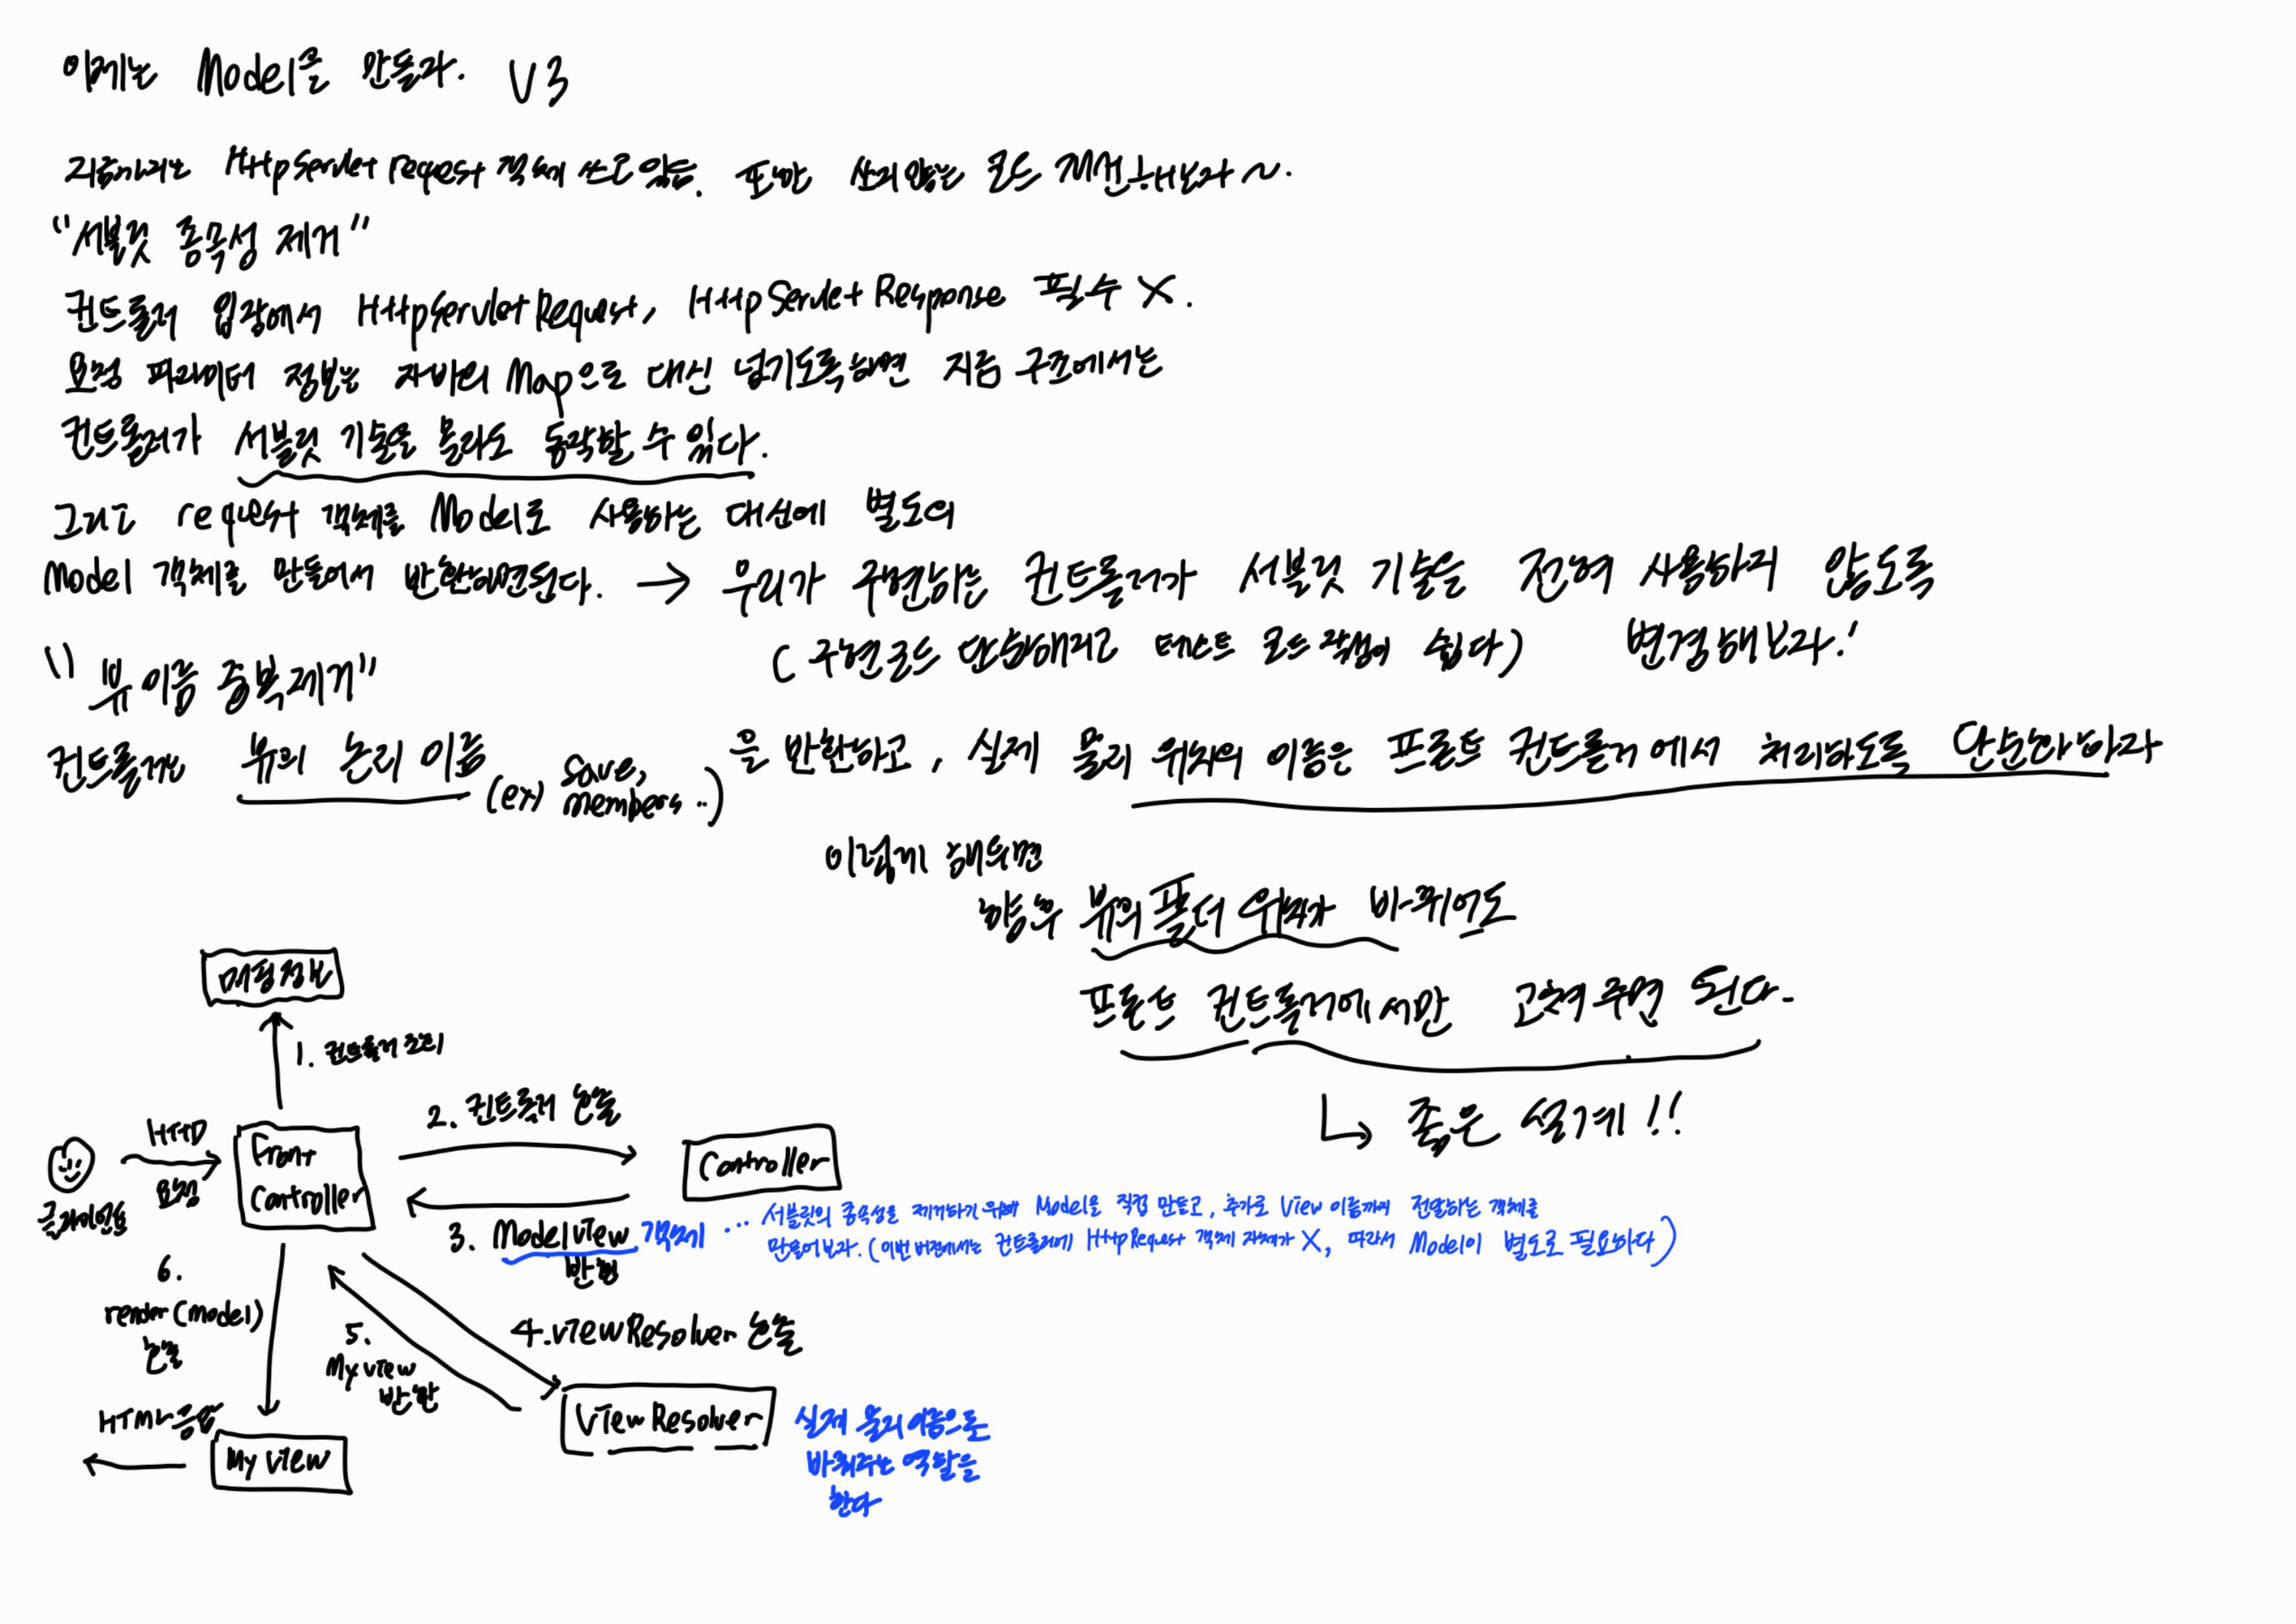 이제는 Model을 만들자. V3
지금까지는 HttpServletrequest 객체 쓰고있음. 또한 쓰지않는 코드 개선해보자~.
"서블릿 종목성 제거"
컨트롤러 입장에서 HttpServletRequest, HttpServletResponse 필수 X.
요청 파라미터 정보는 자바의 Map으로 대신 넘기도록하면 지금 구조에서는
컨트롤러가 서블릿 기술을 몰라도 동작할 수 있다.
그리고 request 객체를 Model로 사용하는 대신에 별도의
Model 객체를 만들어서 반환하면된다. → 우리가 구현하는 컨트롤러가 서블릿 기술을 전혀 사용하지 않도록
변경해보자!
(구현코드 단순해지고 테스트 코드 작성이 쉽다)
"뷰 이름 중복제거"
컨트롤러는 뷰의 논리 이름 (ex) save, members ..) 을 반환하고, 실제 물리 위치의 이름은 프론트 컨트롤러에서 처리하도록 단순화하자
이렇게 해두면
향후 뷰의 폴더 위치가 바뀌어도
프론트 컨트롤러에서만 고쳐주면 된다.
↳ 좋은 설계!!
매핑정보
1. 컨트롤러 조회
클라이언트
HTTP
요청
Front
Controller
2. 컨트롤러 호출
Controller
3. Modelview 객체
반환
... 서블릿의 종속성을 제거하기 위해 Model을 직접 만들고, 추가로 View 이름까지 전달하는 객체를
만들어보자. (이번 버전에서는 컨트롤러에 HttpRequest 객체 자체가 X, 따라서 Model이 별도로 필요하다)
4. viewResolver 호출
View Resolver
실제 물리 이름으로
바꿔주는 역할을
한다
5.
My view
반환
6.
render(model)
호출
HTML응답
My view